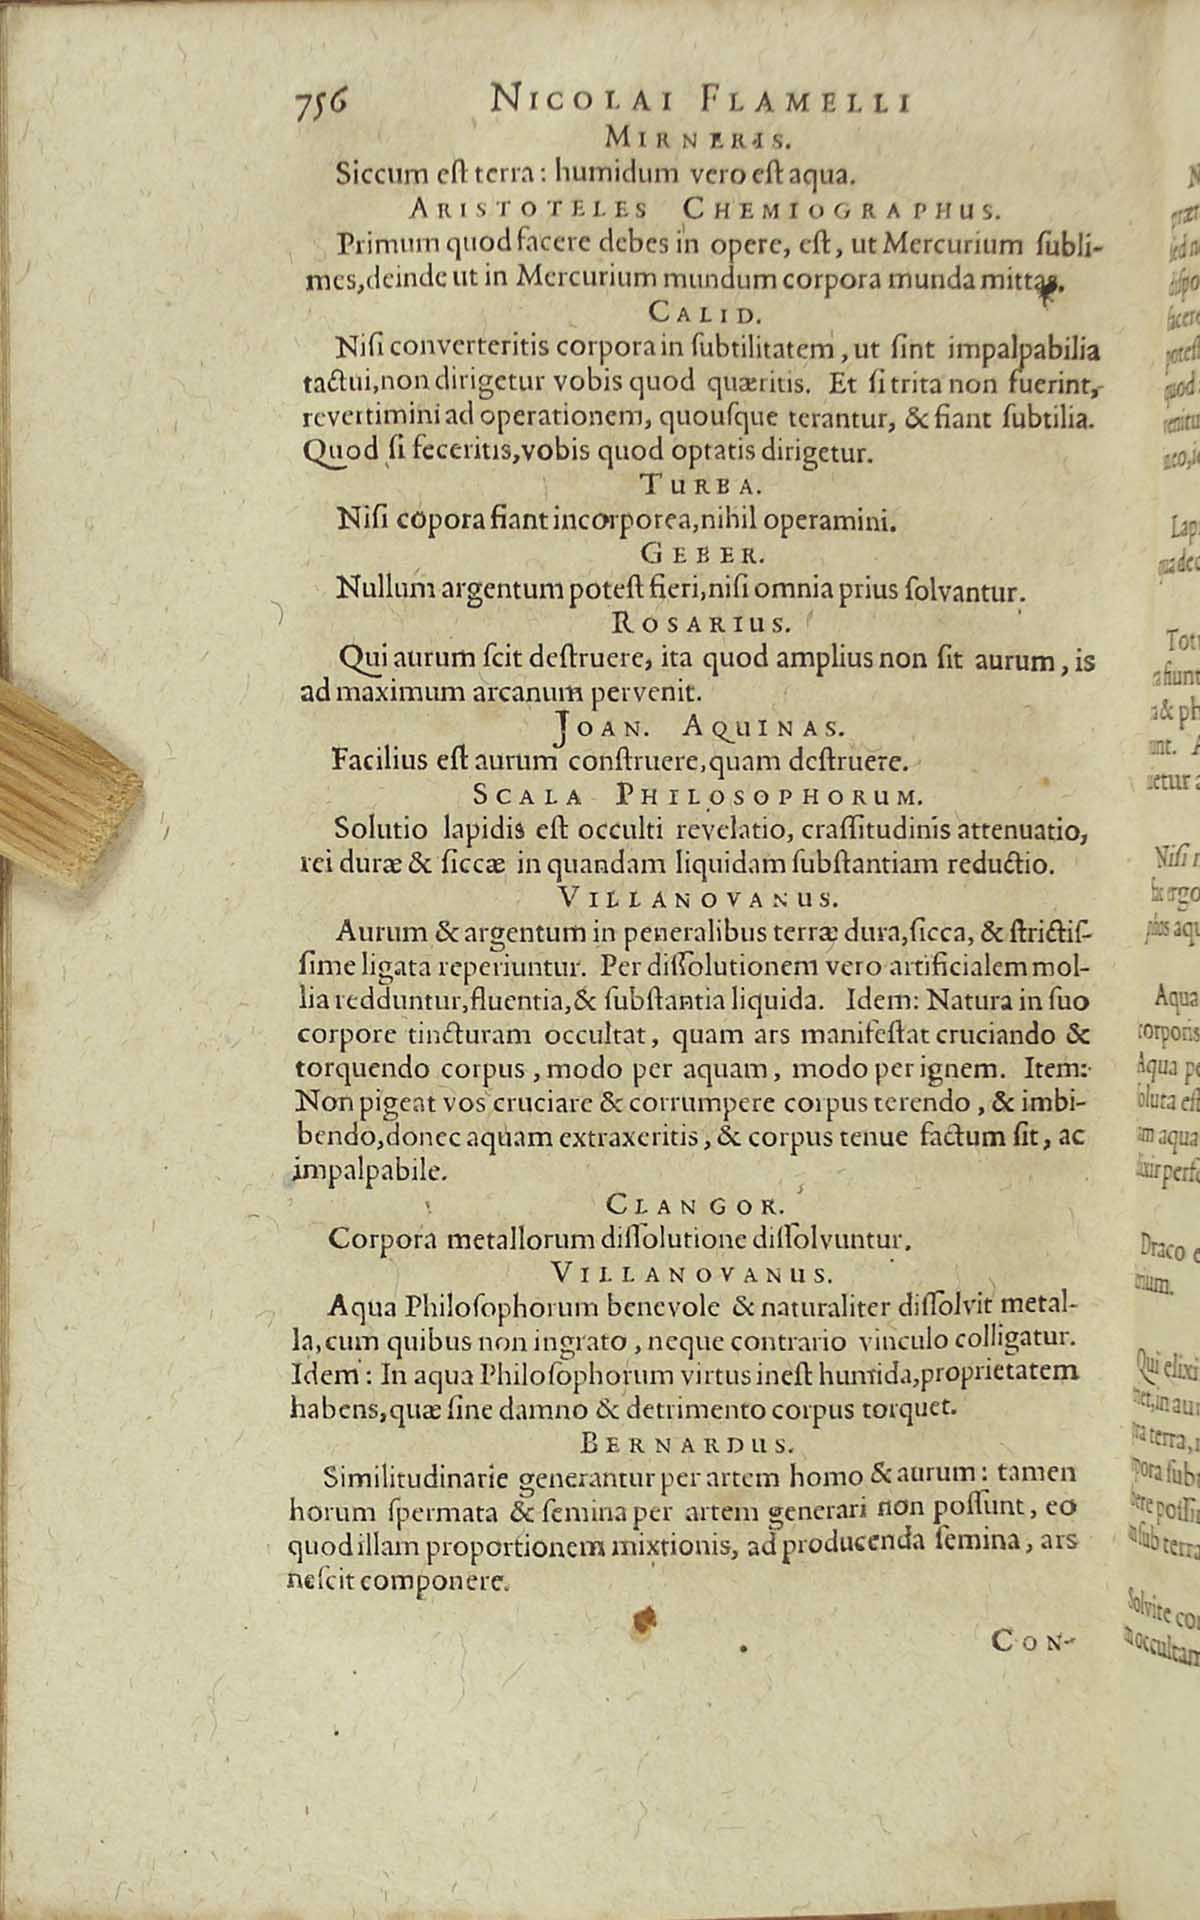 756 NICOLAI FLAMELLI
MIRNERIS.
Siccum eſt terra: humidum vero eſt aqua.
ARISTOTELES CHEMIOGRAPHUS.
Primum quod facere debes in opere, eſt, ut Mercurium ſubli-
mes, deinde ut in Mercurium mundum corpora munda mittas.
CALID.
Niſi converteritis corpora in ſubtilitatem, ut ſint impalpabilia
tactui, non dirigetur vobis quod quæritis. Et ſi trita non fuerint,
revertimini ad operationem, quouſque terantur, & fiant ſubtilia.
Quod ſi feceritis, vobis quod optatis dirigetur.
TURBA.
Niſi copora fiant incorporea, nihil operamini.
GEBER.
Nullum argentum poteſt fieri, niſi omnia prius ſolvantur.
ROSARIUS.
Qui aurum ſcit deſtruere, ita quod amplius non ſit aurum, is
ad maximum arcanum pervenit.
JOAN. AQUINAS.
Facilius eſt aurum conſtruere, quam deſtruere.
SCALA PHILOSOPHORUM.
Solutio lapidis eſt occulti revelatio, craſſitudinis attenuatio,
rei duræ & ſiccæ in quandam liquidam ſubſtantiam reductio.
VILLANOVANUS.
Aurum & argentum in peneralibus terræ dura, ſicca, & ſtrictiſ-
ſime ligata reperiuntur. Per diſſolutionem vero artificialem mol-
lia redduntur, fluentia, & ſubſtantia liquida. Idem: Natura in ſuo
corpore tincturam occultat, quam ars manifeſtat cruciando &
torquendo corpus, modo per aquam, modo per ignem. Item:
Non pigeat vos cruciare & corrumpere corpus terendo, & imbi-
bendo, donec aquam extraxeritis, & corpus tenue factum ſit, ac
impalpabile.
CLANGOR.
Corpora metallorum diſſolutione diſſolvuntur.
VILLANOVANUS.
Aqua Philoſophorum benevole & naturaliter diſſolvit metal-
la, cum quibus non ingrato, neque contrario vinculo colligatur.
Idem: In aqua Philoſophorum virtus ineſt humida, proprietatem
habens, quæ ſine damno & detrimento corpus torquet.
BERNARDUS.
Similitudinarie generantur per artem homo & aurum: tamen
horum ſpermata & ſemina per artem generari non poſſunt, eo
quod illam proportionem mixtionis, ad producenda ſemina, ars
neſcit componere.
CON-